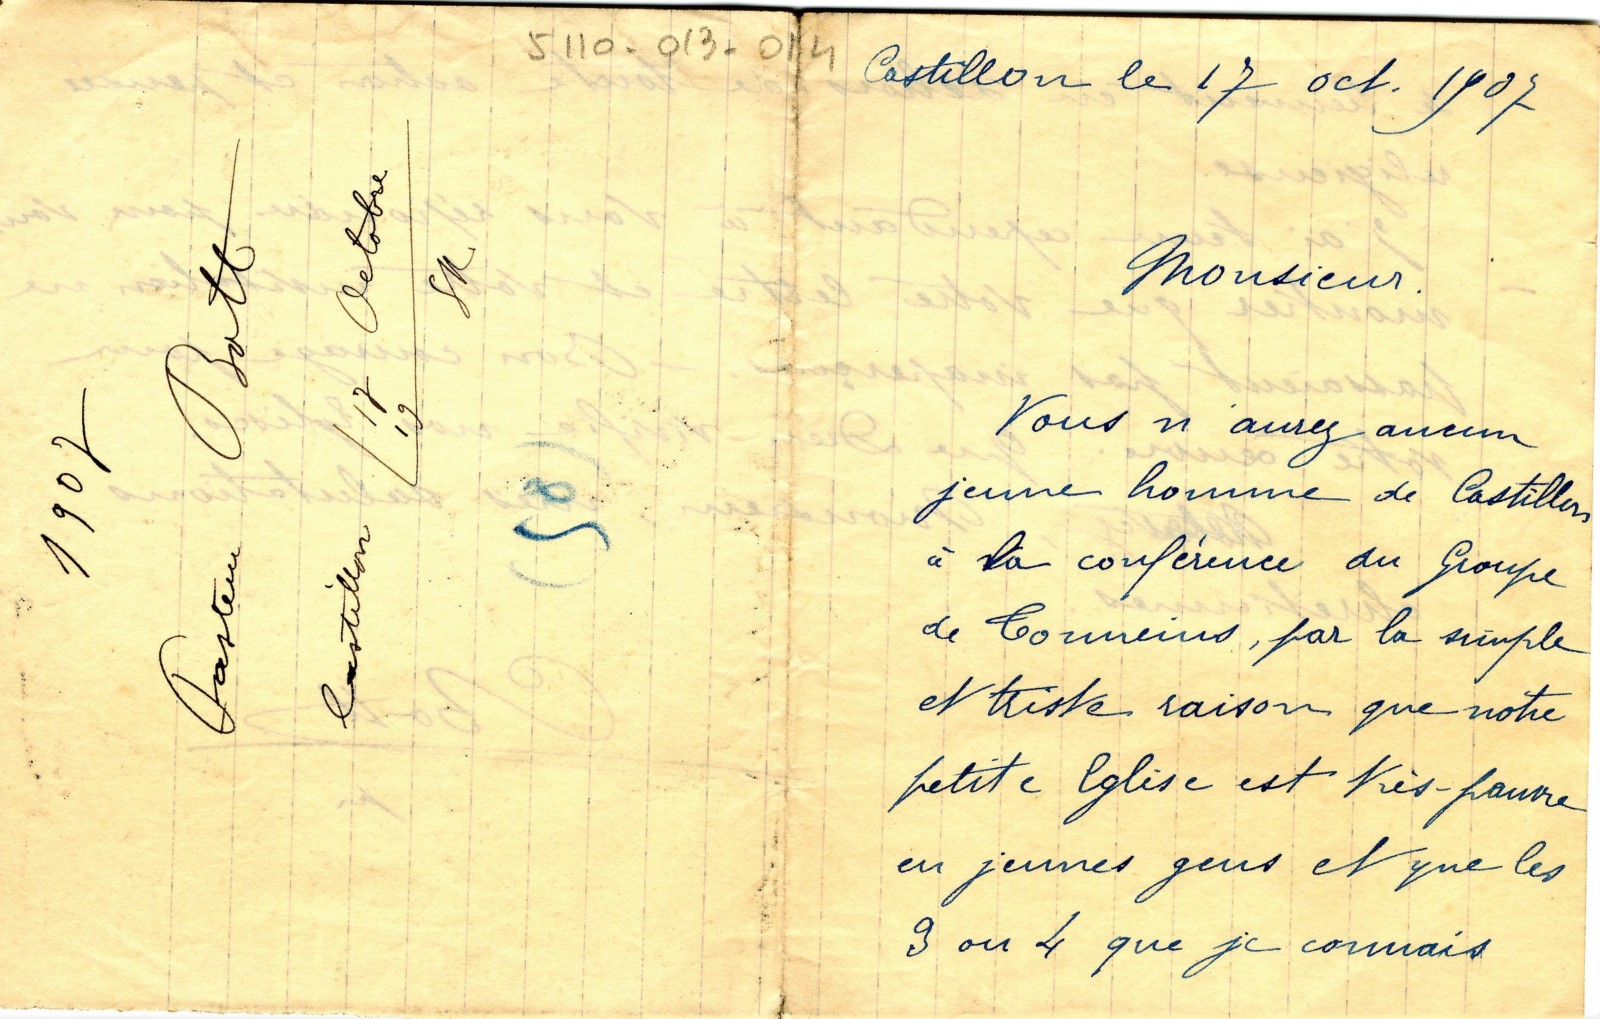 5110-013-014
1907
Pasteur Bott
Castillon 17 Octobre
19
SR.
(58)
Castillon le 17 oct. 1907
Monsieur.
Vous n'aurez aucun
jeune homme de Castillon
à la conférence du Groupe
de Tonneins, par la simple
et triste raison que notre
petite Eglise est très-pauvre
en jeunes gens et que les
3 ou 4 que je connais